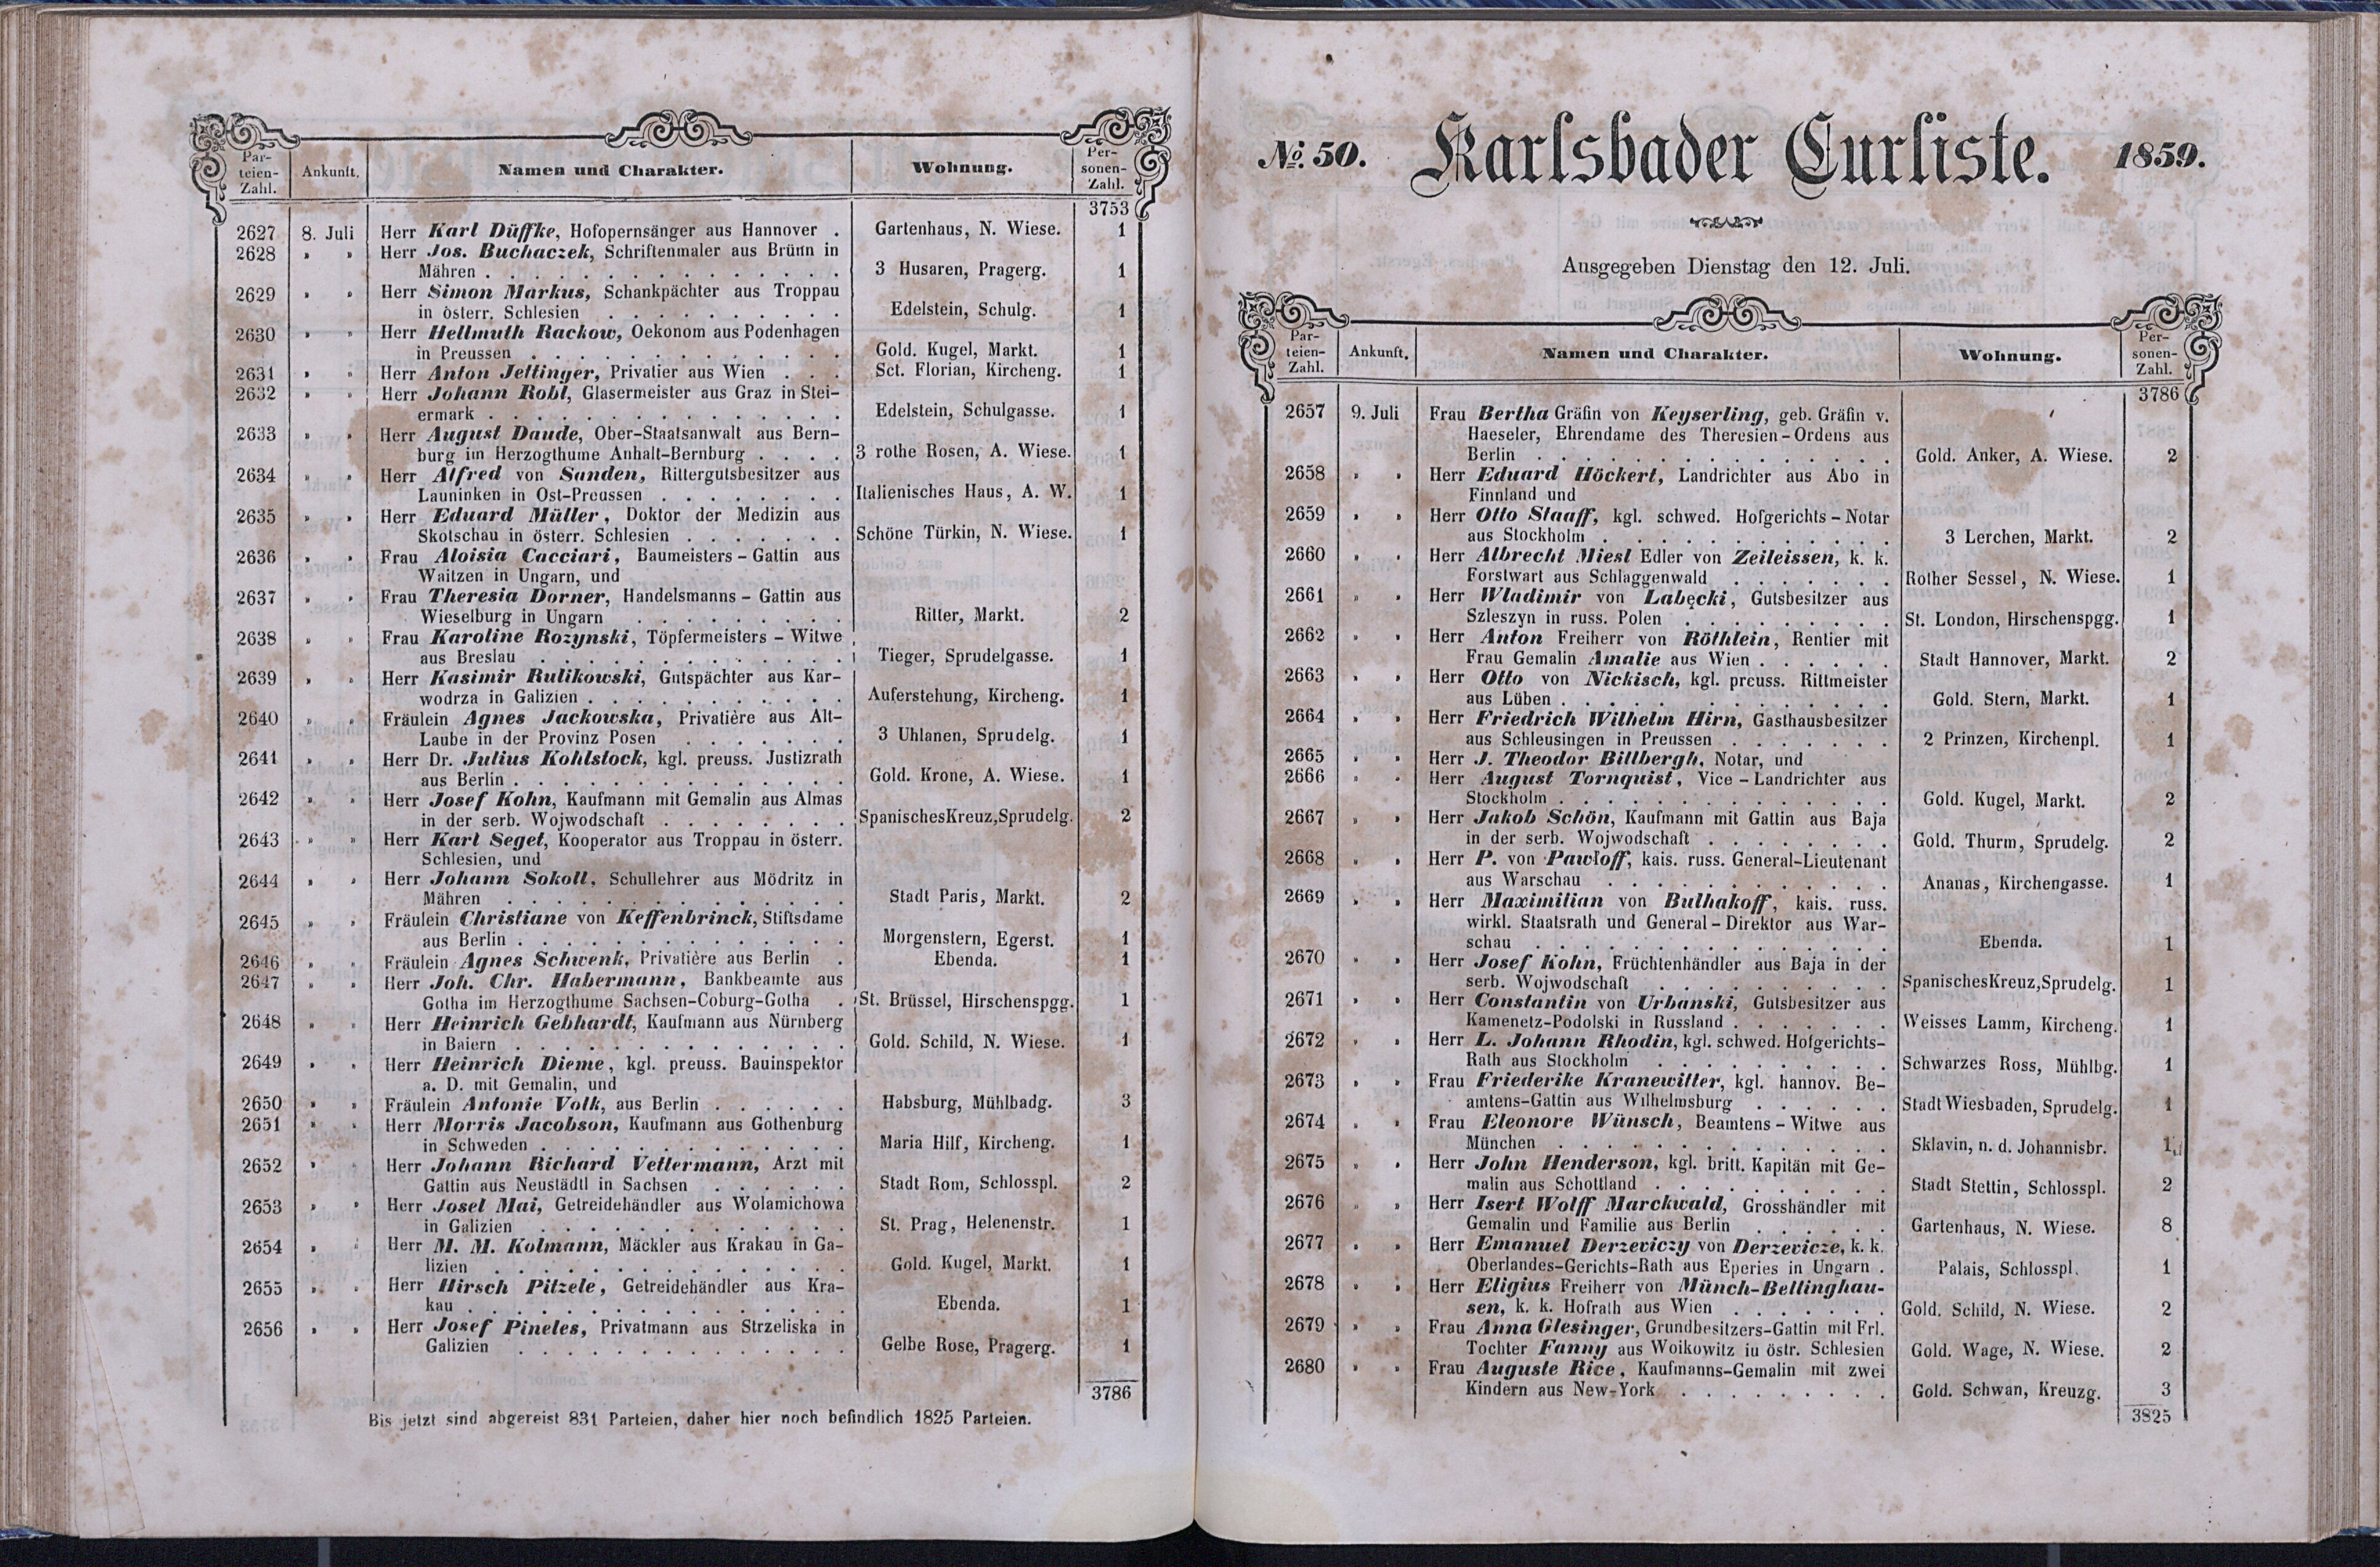 Par-
teien-
Zahl.
Ankunft.
Namen und Charakter.
Wohnung.
Per-
sonen-
Zahl.
3753
2627 8. Juli Herr Karl Düffke, Hofopernsänger aus Hannover . Gartenhaus, N. Wiese. 1
2628 " " Herr Jos. Buchaczek, Schriftenmaler aus Brünn in
Mähren . . . 3 Husaren, Pragerg. 1
2629 " " Herr Simon Markus, Schankpächter aus Troppau
in österr. Schlesien . . . Edelstein, Schulg. 1
2630 " " Herr Hellmuth Rackow, Oekonom aus Podenhagen
in Preussen . . . Gold. Kugel, Markt. 1
2631 " " Herr Anton Jettinger, Privatier aus Wien . . . Sct. Florian, Kircheng. 1
2632 " " Herr Johann Robl, Glasermeister aus Graz in Stei-
ermark . . . Edelstein, Schulgasse. 1
2633 " " Herr August Daude, Ober-Staatsanwalt aus Bern-
burg im Herzogthume Anhalt-Bernburg . . . . 3 rothe Rosen, A. Wiese. 1
2634 " " Herr Alfred von Sanden, Rittergutsbesitzer aus
Launinken in Ost-Preussen . . . Italienisches Haus, A. W. 1
2635 " " Herr Eduard Müller, Doktor der Medizin aus
Skotschau in österr. Schlesien . . . Schöne Türkin, N. Wiese. 1
2636 " " Frau Aloisia Cacciari, Baumeisters-Gattin aus
Waitzen in Ungarn, und
2637 " " Frau Theresia Dorner, Handelsmanns-Gattin aus
Wieselburg in Ungarn . . . Ritter, Markt. 2
2638 " " Frau Karoline Rozynski, Töpfermeisters-Witwe
aus Breslau . . . Tieger, Sprudelgasse. 1
2639 " " Herr Kasimir Rulikowski, Gutspächter aus Kar-
wodrza in Galizien . . . Auferstehung, Kircheng. 1
2640 " " Fräulein Agnes Jackowska, Privatière aus Alt-
Laube in der Provinz Posen . . . 3 Uhlanen, Sprudelg. 1
2641 " " Herr Dr. Julius Kohlstock, kgl. preuss. Justizrath
aus Berlin . . . Gold. Krone, A. Wiese. 1
2642 " " Herr Josef Kohn, Kaufmann mit Gemalin aus Almas
in der serb. Wojwodschaft . . . Spanisches Kreuz, Sprudelg. 2
2643 " " Herr Karl Seget, Kooperator aus Troppau in österr.
Schlesien, und
2644 " " Herr Johann Sokoll, Schullehrer aus Mödritz in
Mähren . . . Stadt Paris, Markt. 2
2645 " " Fräulein Christiane von Keffenbrinck, Stiftsdame
aus Berlin . . . Morgenstern, Egerst. 1
2646 " " Fräulein Agnes Schwenk, Privatière aus Berlin . Ebenda. 1
2647 " " Herr Joh. Chr. Habermann, Bankbeamte aus
Gotha im Herzogthume Sachsen-Coburg-Gotha . St. Brüssel, Hirschenspgg. 1
2648 " " Herr Heinrich Gebhardt, Kaufmann aus Nürnberg
in Baiern . . . Gold. Schild, N. Wiese. 1
2649 " " Herr Heinrich Dieme, kgl. preuss. Bauinspektor
a. D. mit Gemalin, und
2650 " " Fräulein Antonie Volk, aus Berlin . . . Habsburg, Mühlbadg. 3
2651 " " Herr Morris Jacobson, Kaufmann aus Gothenburg
in Schweden . . . Maria Hilf, Kircheng. 1
2652 " " Herr Johann Richard Vettermann, Arzt mit
Gattin aus Neustädtl in Sachsen . . . Stadt Rom, Schlosspl. 2
2653 " " Herr Josel Mai, Getreidehändler aus Wolamichowa
in Galizien . . . St. Prag, Helenenstr. 1
2654 " " Herr M. M. Kolmann, Mäckler aus Krakau in Ga-
lizien . . . Gold. Kugel, Markt. 1
2655 " " Herr Hirsch Pitzele, Getreidehändler aus Kra-
kau . . . Ebenda. 1
2656 " " Herr Josef Pineles, Privatmann aus Strzeliska in
Galizien . . . Gelbe Rose, Pragerg. 1
3786
Bis jetzt sind abgereist 831 Parteien, daher hier noch befindlich 1825 Parteien.
No. 50. Karlsbader Curliste. 1859.
Ausgegeben Dienstag den 12. Juli.
Par-
teien-
Zahl.
Ankunft.
Namen und Charakter.
Wohnung.
Per-
sonen-
Zahl.
3786
2657 9. Juli Frau Bertha Gräfin von Keyserling, geb. Gräfin v.
Haeseler, Ehrendame des Theresien-Ordens aus
Berlin . . . Gold. Anker, A. Wiese. 2
2658 " " Herr Eduard Höckert, Landrichter aus Abo in
Finnland und
2659 " " Herr Otto Staaff, kgl. schwed. Hofgerichts-Notar
aus Stockholm . . . 3 Lerchen, Markt. 2
2660 " " Herr Albrecht Miesl Edler von Zeileissen, k. k.
Forstwart aus Schlaggenwald . . . Rother Sessel, N. Wiese. 1
2661 " " Herr Wladimir von Labęcki, Gutsbesitzer aus
Szleszyn in russ. Polen . . . St. London, Hirschenspgg. 1
2662 " " Herr Anton Freiherr von Röthlein, Rentier mit
Frau Gemalin Amalie aus Wien . . . Stadt Hannover, Markt. 2
2663 " " Herr Otto von Nickisch, kgl. preuss. Rittmeister
aus Lüben . . . Gold. Stern, Markt. 1
2664 " " Herr Friedrich Wilhelm Hirn, Gasthausbesitzer
aus Schleusingen in Preussen . . . 2 Prinzen, Kirchenpl. 1
2665 " " Herr J. Theodor Billbergh, Notar, und
2666 " " Herr August Tornquist, Vice-Landrichter aus
Stockholm . . . Gold. Kugel, Markt. 2
2667 " " Herr Jakob Schön, Kaufmann mit Gattin aus Baja
in der serb. Wojwodschaft . . . Gold. Thurm, Sprudelg. 2
2668 " " Herr P. von Pawloff, kais. russ. General-Lieutenant
aus Warschau . . . Ananas, Kirchengasse. 1
2669 " " Herr Maximilian von Bulhakoff, kais. russ.
wirkl. Staatsrath und General-Direktor aus War-
schau . . . Ebenda. 1
2670 " " Herr Josef Kohn, Früchtenhändler aus Baja in der
serb. Wojwodschaft . . . Spanisches Kreuz, Sprudelg. 1
2671 " " Herr Constantin von Urbanski, Gutsbesitzer aus
Kamenetz-Podolski in Russland . . . Weisses Lamm, Kircheng. 1
2672 " " Herr L. Johann Rhodin, kgl. schwed. Hofgerichts-
Rath aus Stockholm . . . Schwarzes Ross, Mühlbg. 1
2673 " " Frau Friederike Kranewitter, kgl. hannov. Be-
amtens-Gattin aus Wilhelmsburg . . . Stadt Wiesbaden, Sprudelg. 1
2674 " " Frau Eleonore Wünsch, Beamtens-Witwe aus
München . . . Sklavin, n. d. Johannisbr. 1
2675 " " Herr John Henderson, kgl. britt. Kapitän mit Ge-
malin aus Schottland . . . Stadt Stettin, Schlosspl. 2
2676 " " Herr Isert Wolff Marckwald, Grosshändler mit
Gemalin und Familie aus Berlin . . . Gartenhaus, N. Wiese. 8
2677 " " Herr Emanuel Derzeviczy von Derzevicze, k. k.
Oberlandes-Gerichts-Rath aus Eperies in Ungarn . Palais, Schlosspl. 1
2678 " " Herr Eligius Freiherr von Münch-Bellinghau-
sen, k. k. Hofrath aus Wien . . . Gold. Schild, N. Wiese. 2
2679 " " Frau Anna Glesinger, Grundbesitzers-Gattin mit Frl.
Tochter Fanny aus Woikowitz in östr. Schlesien Gold. Wage, N. Wiese. 2
2680 " " Frau Auguste Rice, Kaufmanns-Gemalin mit zwei
Kindern aus New-York . . . Gold. Schwan, Kreuzg. 3
3825